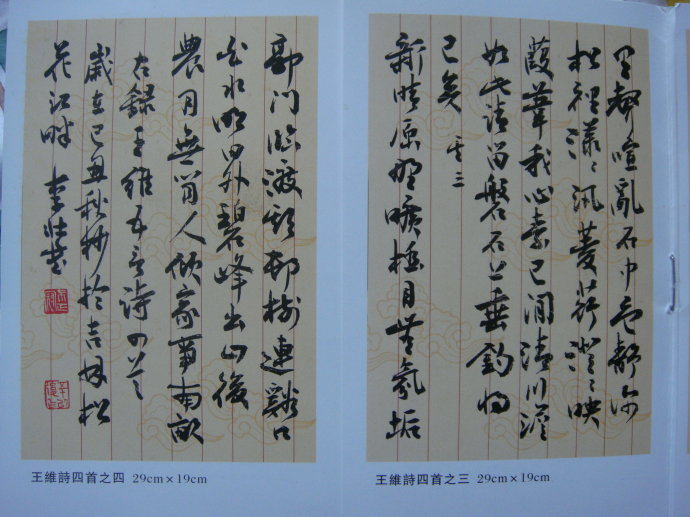 里聲喧亂石中色靜深
松裡漾〻汎菱荇澄〻映
葭葦我心素已閒清川澹
如此請留磐石上垂釣將
已矣 其三
新晴原野曠極目無氛垢
王維詩四首之三 29cm×19cm
郭門臨渡頭村樹連谿口
白水明田外碧峰出山後
農月無閒人傾家事南畝
右錄王維五言詩四首
歲在己丑秋杪於吉林松
花江畔 李
王維詩四首之四 29cm×19cm